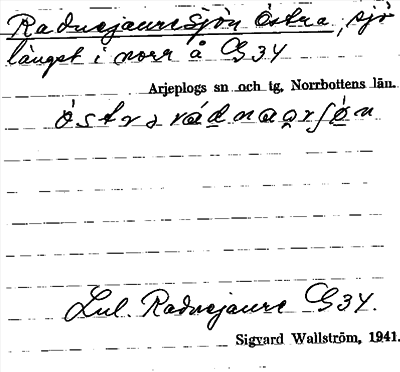 Radnejauresjön Östra, sjö
längst i norr å G 34
Arjeplogs sn och tg, Norrbottens län.
Lul. Radnejaure G 34.
Sigvard Wallström, 1941.